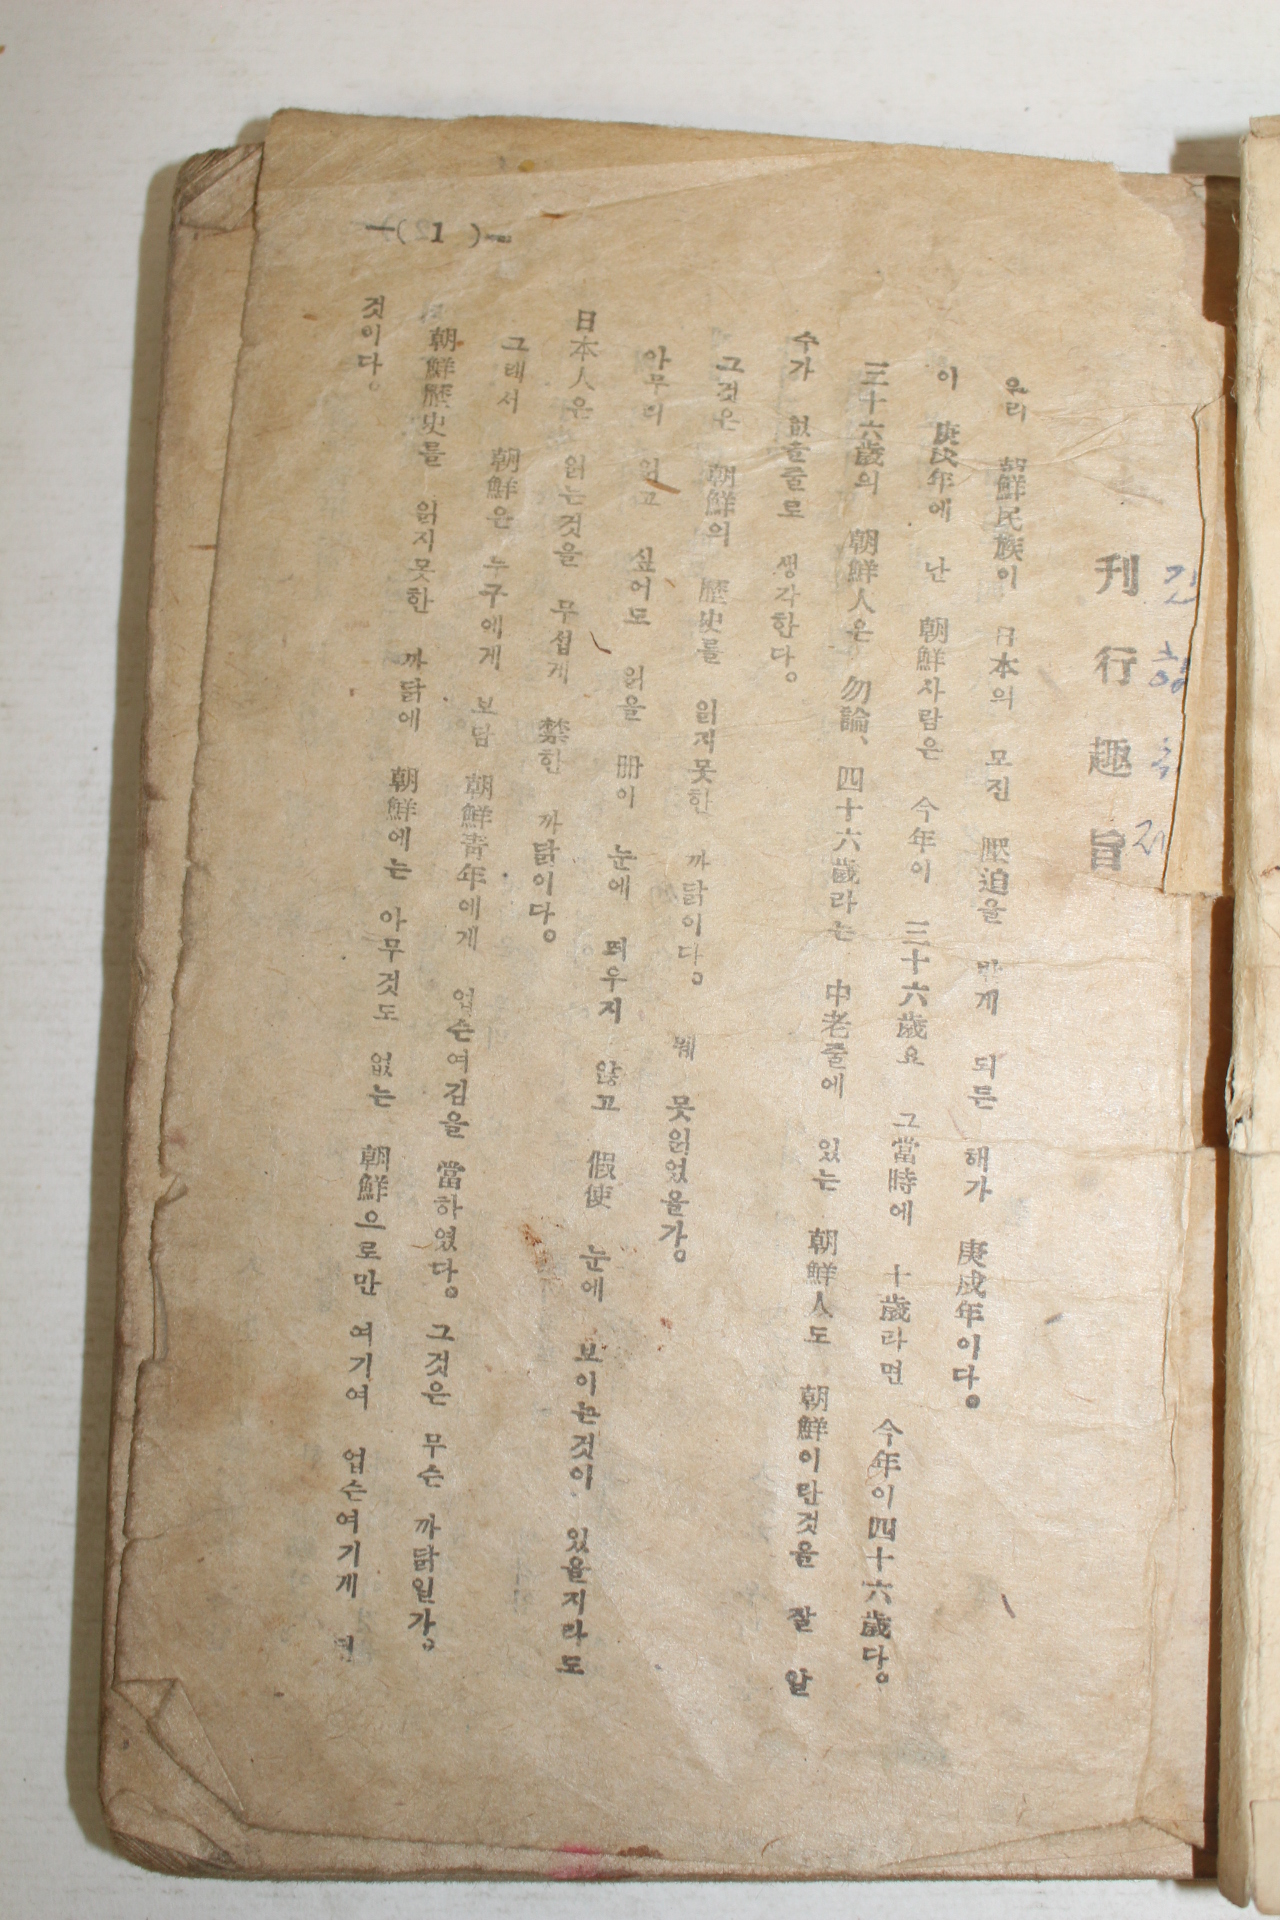 刊行趣旨
간행취지
우리 朝鮮民族이 日本의 모진 壓迫을 받게 되든 해가 庚戌年이다。
이 庚戌年에 난 朝鮮사람은 今年이 三十六歲요 그當時에 十歲라면 今年이四十六歲다。
三十六歲의 朝鮮人은 勿論、四十六歲라는 中老줄에 있는 朝鮮人도 朝鮮이란것을 잘 알
수가 없을줄로 생각한다。
그것은 朝鮮의 歷史를 읽지못한 까닭이다。 웨 못읽었을가。
아무리 읽고 싶어도 읽을 冊이 눈에 띄우지 않고 假使 눈에 보이는것이 있을지라도
日本人은 읽는것을 무섭게 禁한 까닭이다。
그래서 朝鮮은 누구에게 보담 朝鮮靑年에게 업슨여김을 當하였다。 그것은 무슨 까닭일가。
朝鮮歷史를 읽지못한 까닭에 朝鮮에는 아무것도 없는 朝鮮으로만 여기여 업슨여기게 된
것이다。
—( 1 )—